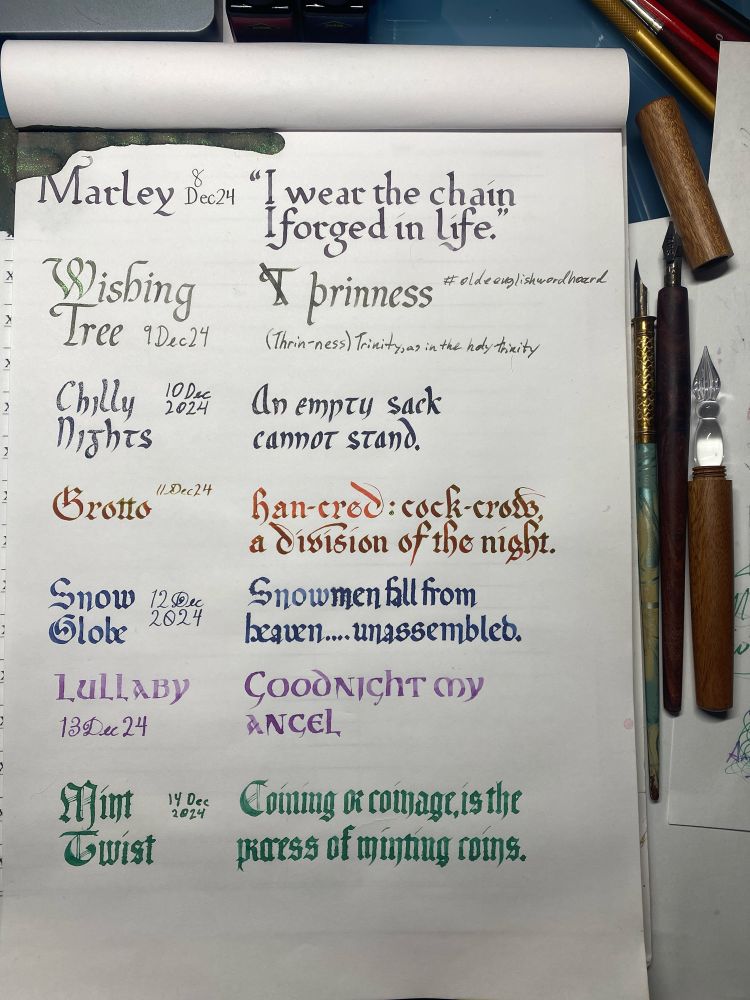 Marley 8 Dec24 "I wear the chain
I forged in life."
Wishing Þrinness #oldeenglishwordhoard
Tree 9Dec24 (Thrin-ness) Trinity, as in the holy trinity
Chilly 10 Dec 2024 An empty sack
Nights cannot stand.
Grotto 11Dec24 han-cred: cock-crow,
a division of the night.
Snow 12 Dec Snowmen fall from
Globe 2024 heaven.... unassembled.
Lullaby Goodnight my
13Dec24 Angel
Mint 14 Dec Coining or coinage, is the
Twist 2024 process of minting coins.